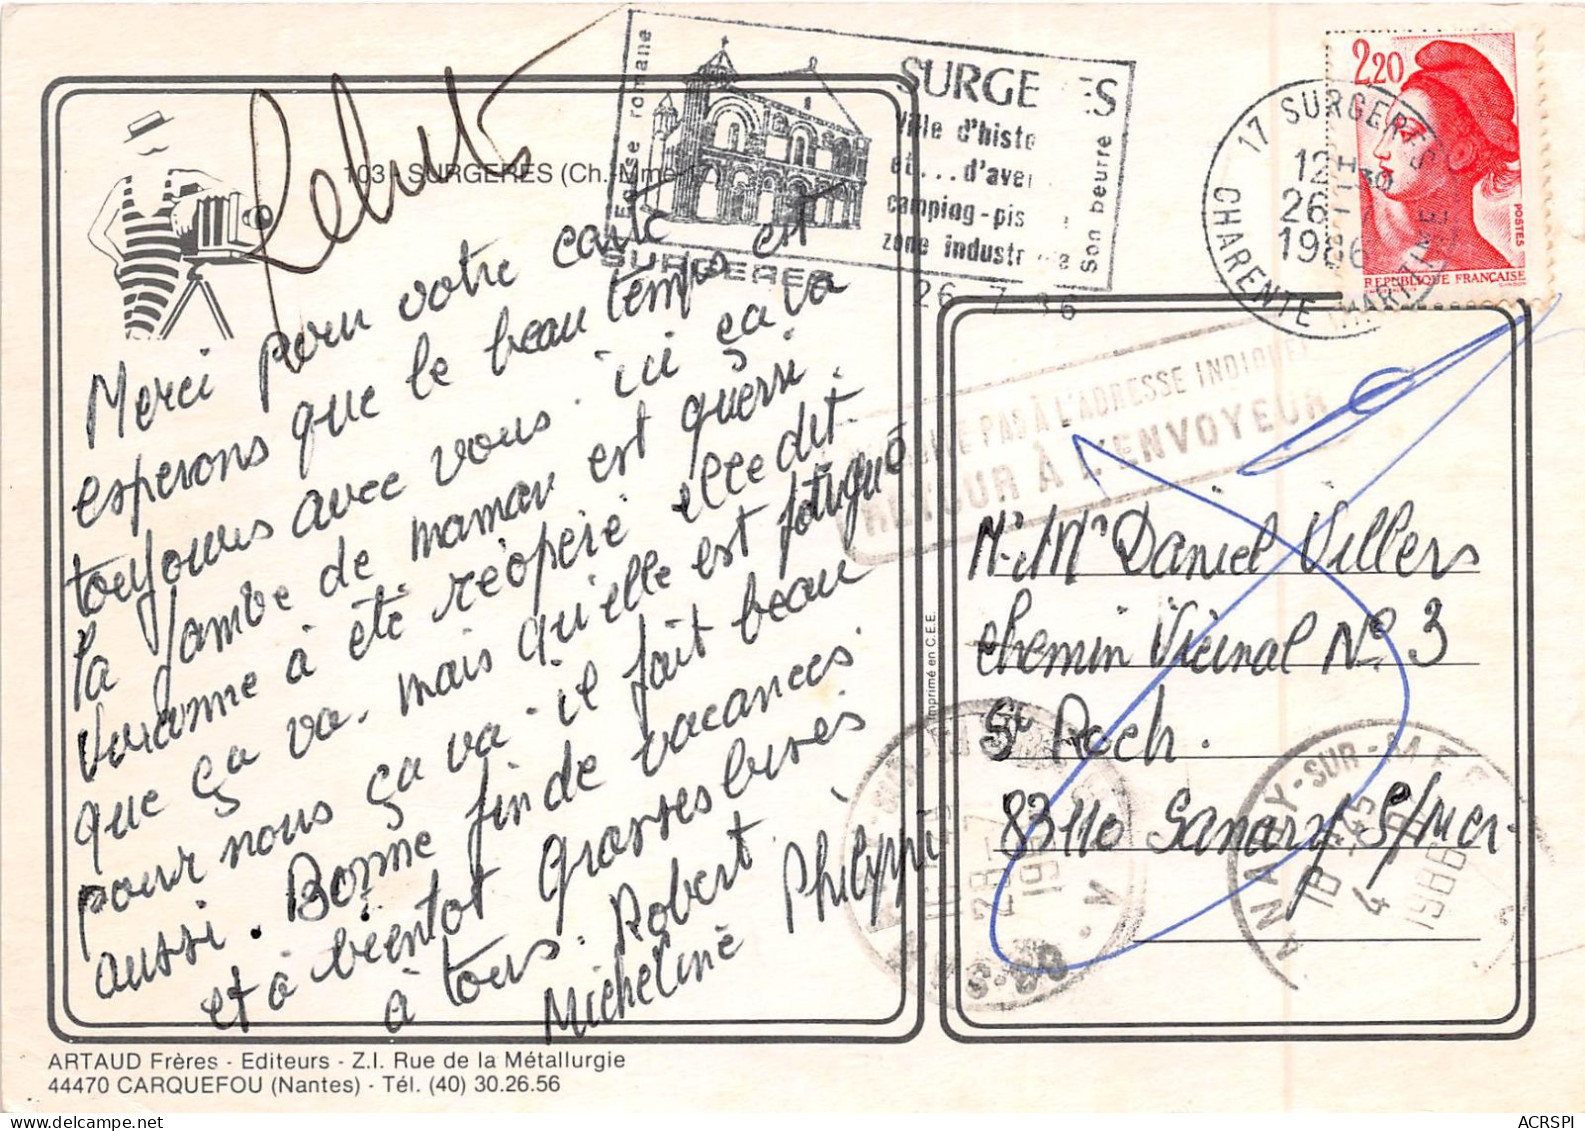 Rebuts
103 - SURGERES (Ch.-Mme-17)
Eglise romane
SURGERES
SURGE ES
Ville d'histo
et... d'aven
camping-pis
zone industr lle
Son beurre
26 7 86
17 SURGERES
12H30
26-7
1986
CHARENTE MARITIME
2,20
POSTES
REPUBLIQUE FRANÇAISE
PAS À L'ADRESSE INDIQUÉE
RETOUR À L'ENVOYEUR
Merci pour votre carte
esperons que le beau temps est
toujours avec vous. ici ça va
la jambe de maman est guerri.
elle a été réopéré elle dit
que ça va. mais qu'elle est fatigué
pour nous ça va. il fait beau
aussi. Bonne fin de vacances.
et à bientôt grosses bises
à tous. Robert
Micheline Philippe
M. Mme Daniel Villers
Chemin Vicinal N° 3
St Roch.
83110 Sanary S/mer
imprimé en C.E.E.
SANARY-SUR-MER
18H45
4
1986
28-7
19
ARTAUD Frères - Editeurs - Z.I. Rue de la Métallurgie
44470 CARQUEFOU (Nantes) - Tél. (40) 30.26.56
ACRSPI